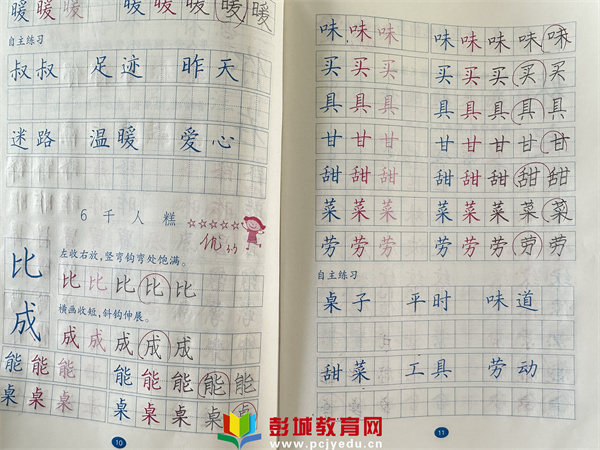 暖 暖 暖 暖 暖 暖 暖 暖
自主练习
叔叔 足迹 昨天
迷路 温暖 爱心
6 千人糕
优
比
左收右放,竖弯钩弯处饱满。
比 比 比 比 比
成
横画收短,斜钩伸展。
成 成 成 成 成
能 能 能 能 能 能 能 能
桌 桌 桌 桌 桌 桌 桌 桌
10
味 味 味 味 味 味 味 味
买 买 买 买 买 买 买 买
具 具 具 具 具 具 具 具
甘 甘 甘 甘 甘 甘 甘 甘
甜 甜 甜 甜 甜 甜 甜 甜
菜 菜 菜 菜 菜 菜 菜 菜
劳 劳 劳 劳 劳 劳 劳 劳
自主练习
桌子 平时 味道
甜菜 工具 劳动
11
彭城教育网
www.pcjyedu.cn